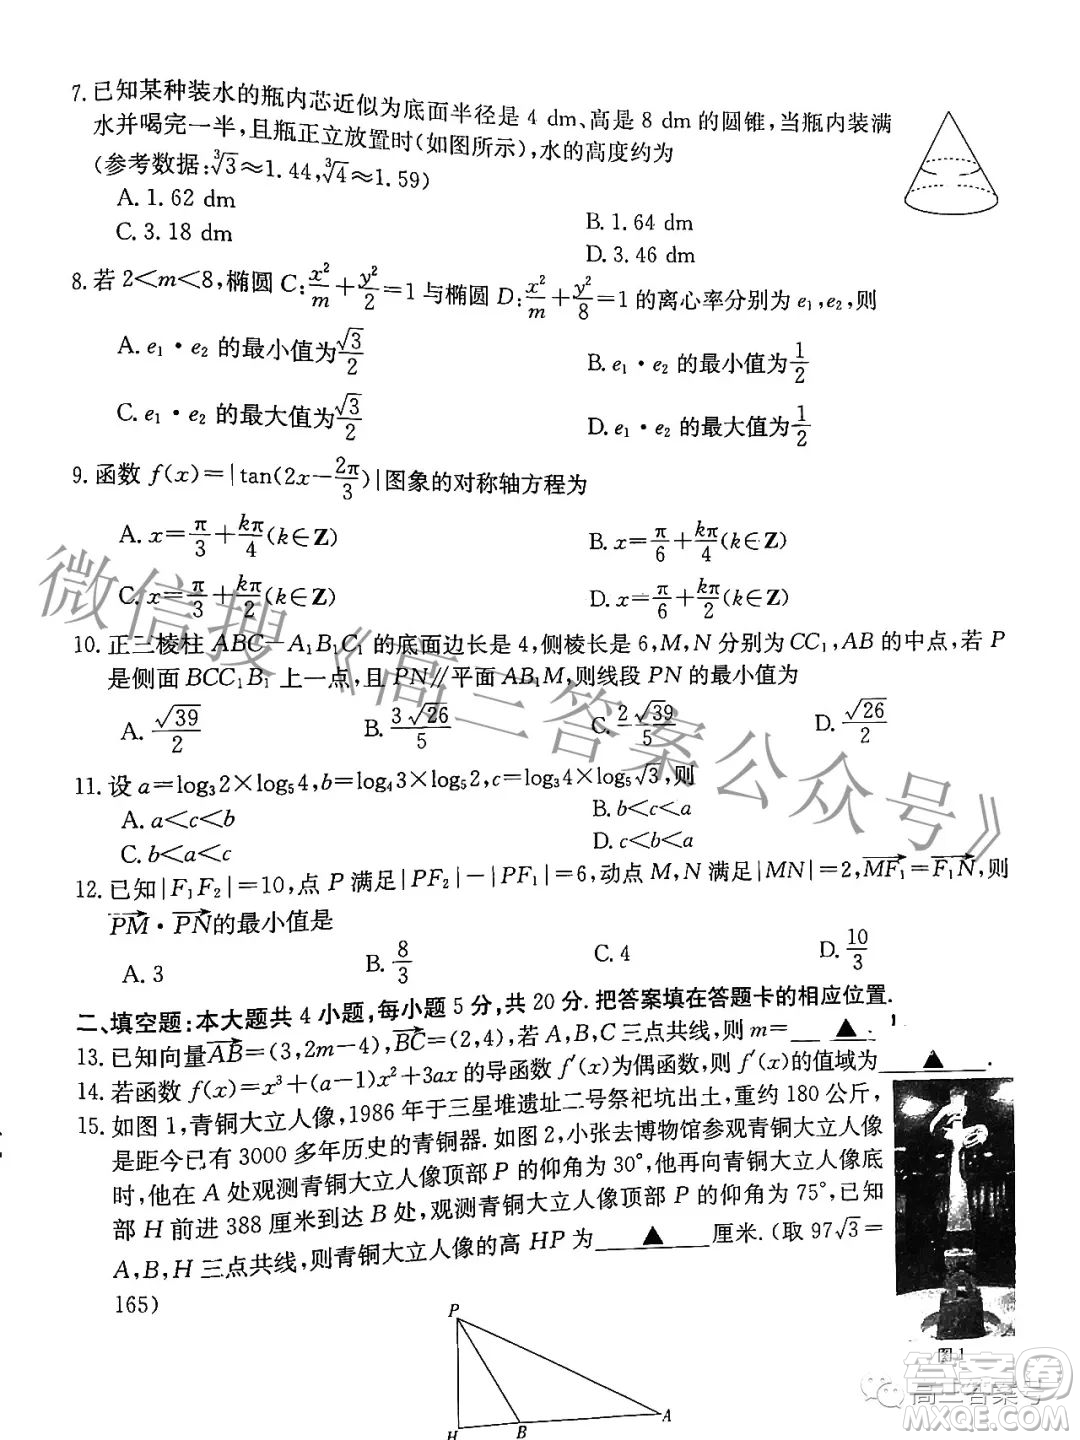 7. 已知某种装水的瓶内芯近似为底面半径是 4 dm、高是 8 dm 的圆锥，当瓶内装满
水并喝完一半，且瓶正立放置时(如图所示)，水的高度约为
(参考数据：∛3≈1.44，∛4≈1.59)
A. 1.62 dm
B. 1.64 dm
C. 3.18 dm
D. 3.46 dm
8. 若 2<m<8，椭圆 C：x²/m+y²/2=1 与椭圆 D：x²/m+y²/8=1 的离心率分别为 e₁，e₂，则
A. e₁·e₂ 的最小值为√3/2
B. e₁·e₂ 的最小值为1/2
C. e₁·e₂ 的最大值为√3/2
D. e₁·e₂ 的最大值为1/2
9. 函数 f(x)=|tan(2x-2π/3)|图象的对称轴方程为
A. x=π/3+kπ/4(k∈Z)
B. x=π/6+kπ/4(k∈Z)
C. x=π/3+kπ/2(k∈Z)
D. x=π/6+kπ/2(k∈Z)
10. 正三棱柱 ABC-A₁B₁C₁ 的底面边长是 4，侧棱长是 6，M，N 分别为 CC₁，AB 的中点，若 P
是侧面 BCC₁B₁ 上一点，且 PN∥平面 AB₁M，则线段 PN 的最小值为
A. √39/2
B. 3√26/5
C. 2√39/5
D. √26/2
11. 设 a=log₃2×log₅4，b=log₄3×log₅2，c=log₃4×log₅√3，则
A. a<c<b
B. b<c<a
C. b<a<c
D. c<b<a
12. 已知|F₁F₂|=10，点 P 满足|PF₂|-|PF₁|=6，动点 M，N 满足|MN|=2，MF₁→=F₁N→，则
PM→·PN→的最小值是
A. 3
B. 8/3
C. 4
D. 10/3
二、填空题：本大题共 4 小题，每小题 5 分，共 20 分. 把答案填在答题卡的相应位置.
13. 已知向量AB→=(3，2m-4)，BC→=(2，4)，若 A，B，C 三点共线，则 m=__▲__.
14. 若函数 f(x)=x³+(a-1)x²+3ax 的导函数 f′(x)为偶函数，则 f′(x)的值域为__▲__.
15. 如图 1，青铜大立人像，1986 年于三星堆遗址二号祭祀坑出土，重约 180 公斤，
是距今已有 3000 多年历史的青铜器. 如图 2，小张去博物馆参观青铜大立人像
时，他在 A 处观测青铜大立人像顶部 P 的仰角为 30°，他再向青铜大立人像底
部 H 前进 388 厘米到达 B 处，观测青铜大立人像顶部 P 的仰角为 75°，已知
A，B，H 三点共线，则青铜大立人像的高 HP 为__▲__厘米. (取 97√3=
165)
P
H
B
A
图 1
微信搜《高三答案公众号》
高三答案号
答案圈
MXQE.COM